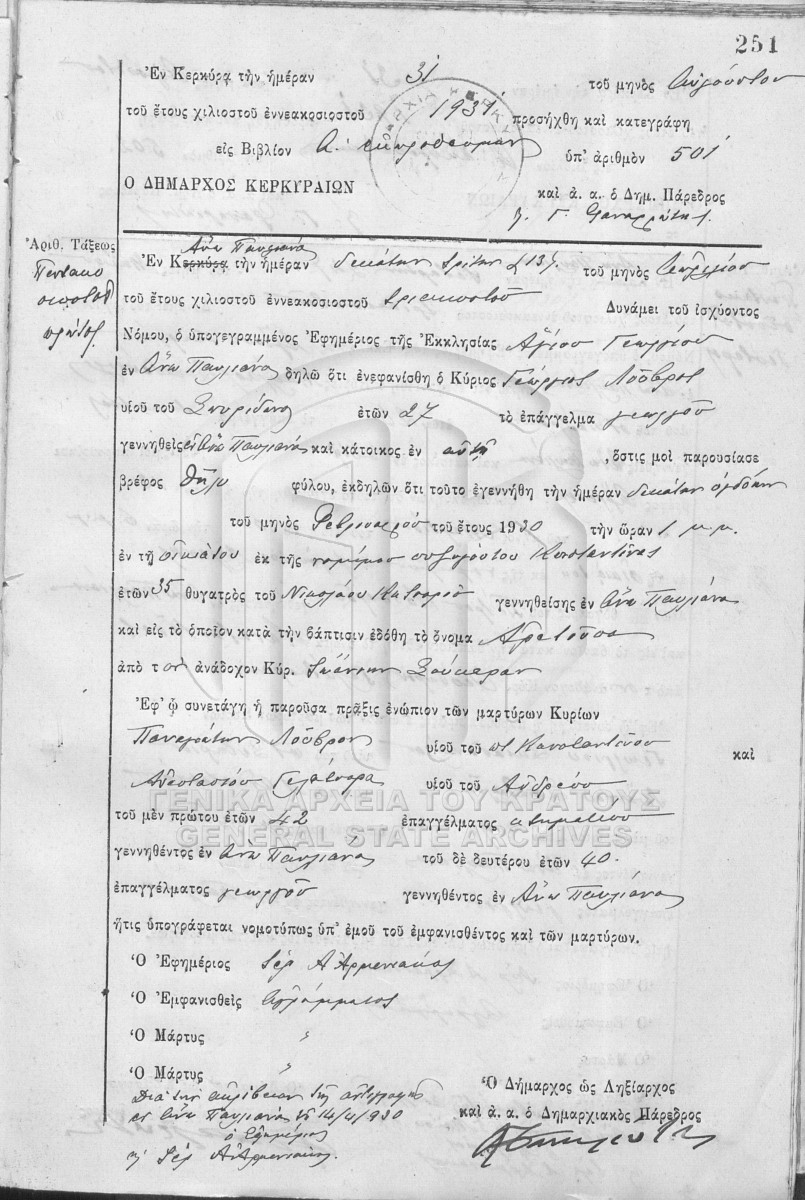 251
Ἐν Κερκύρᾳ τὴν ἡμέραν 31 τοῦ μηνὸς Αὐγούστου
τοῦ ἔτους χιλιοστοῦ ἐννεακοσιοστοῦ 1931 προσήχθη καὶ κατεγράφη
εἰς Βιβλίον Α. ὑπ' ἀριθμὸν 501
Ο ΔΗΜΑΡΧΟΣ ΚΕΡΚΥΡΑΙΩΝ
καὶ ἀ. α. ὁ Δημ. Πάρεδρος
Ἀριθ. Τάξεως
Πεντακο
σιοστοῦ
πρώτος
Ἄνω Παυλιάνα
Ἐν Κερκύρᾳ τὴν ἡμέραν δεκάτην τρίτην (13) τοῦ μηνὸς Ἀπριλίου
τοῦ ἔτους χιλιοστοῦ ἐννεακοσιοστοῦ τριακοστοῦ Δυνάμει τοῦ ἰσχύοντος
Νόμου, ὁ ὑπογεγραμμένος Ἐφημέριος τῆς Ἐκκλησίας Ἁγίου Γεωργίου
ἐν Ἄνω Παυλιάνα δηλῶ ὅτι ἐνεφανίσθη ὁ Κύριος Γεώργιος Λοῦβρος
υἱοῦ τοῦ Σπυρίδωνος ἐτῶν 27 τὸ ἐπάγγελμα γεωργοῦ
γεννηθεὶς ἐν Ἄνω Παυλιάνα καὶ κάτοικος ἐν αὐτῇ , ὅστις μοι παρουσίασε
βρέφος θῆλυ φύλου, ἐκδηλῶν ὅτι τοῦτο ἐγεννήθη τὴν ἡμέραν δεκάτην ὀγδόην
τοῦ μηνὸς Φεβρουαρίου τοῦ ἔτους 1930 τὴν ὥραν 1 μ.μ.
ἐν τῇ οἰκίᾳ του ἐκ τῆς νομίμου συζύγου του Κωσταντίνας
ἐτῶν 35 θυγατρὸς τοῦ Νικολάου γεννηθείσης ἐν Ἄνω Παυλιάνα
καὶ εἰς τὸ ὁποῖον κατὰ τὴν βάπτισιν ἐδόθη τὸ ὄνομα Ἀρετοῦσα
ἀπὸ τὸν ἀνάδοχον Κύρ. Ἰωάννην
Ἐφ' ᾧ συνετάγη ἡ παροῦσα πρᾶξις ἐνώπιον τῶν μαρτύρων Κυρίων
Παναγιώτην Λοῦβρον υἱοῦ τοῦ ποτὲ Κωνσταντίνου καὶ
Ἀναστασίου υἱοῦ τοῦ Ἀνδρέου
τοῦ μὲν πρώτου ἐτῶν 42 ἐπαγγέλματος κτηματίου
γεννηθέντος ἐν Ἄνω Παυλιάνα τοῦ δὲ δευτέρου ἐτῶν 40
ἐπαγγέλματος γεωργοῦ γεννηθέντος ἐν Ἄνω Παυλιάνα
ἥτις ὑπογράφεται νομοτύπως ὑπ' ἐμοῦ τοῦ ἐμφανισθέντος καὶ τῶν μαρτύρων.
Ὁ Ἐφημέριος Ἱερ Α Ἀρμενιάκος
Ὁ Ἐμφανισθεὶς Ἀγράμματος
Ὁ Μάρτυς "
Ὁ Μάρτυς "
Διὰ τὴν ἀκρίβειαν τῆς ἀντιγραφῆς
ἐν Ἄνω Παυλιάνα τῇ 14/4/930
ὁ Ἐφημέριος
Ἱερ Α Ἀρμενιάκος
Ὁ Δήμαρχος ὡς Ληξίαρχος
καὶ ἀ. α. ὁ Δημαρχιακὸς Πάρεδρος
ΓΕΝΙΚΑ ΑΡΧΕΙΑ ΤΟΥ ΚΡΑΤΟΥΣ
GENERAL STATE ARCHIVES